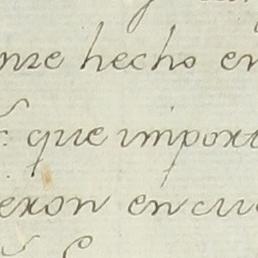 hecho en
que import
exon en cu